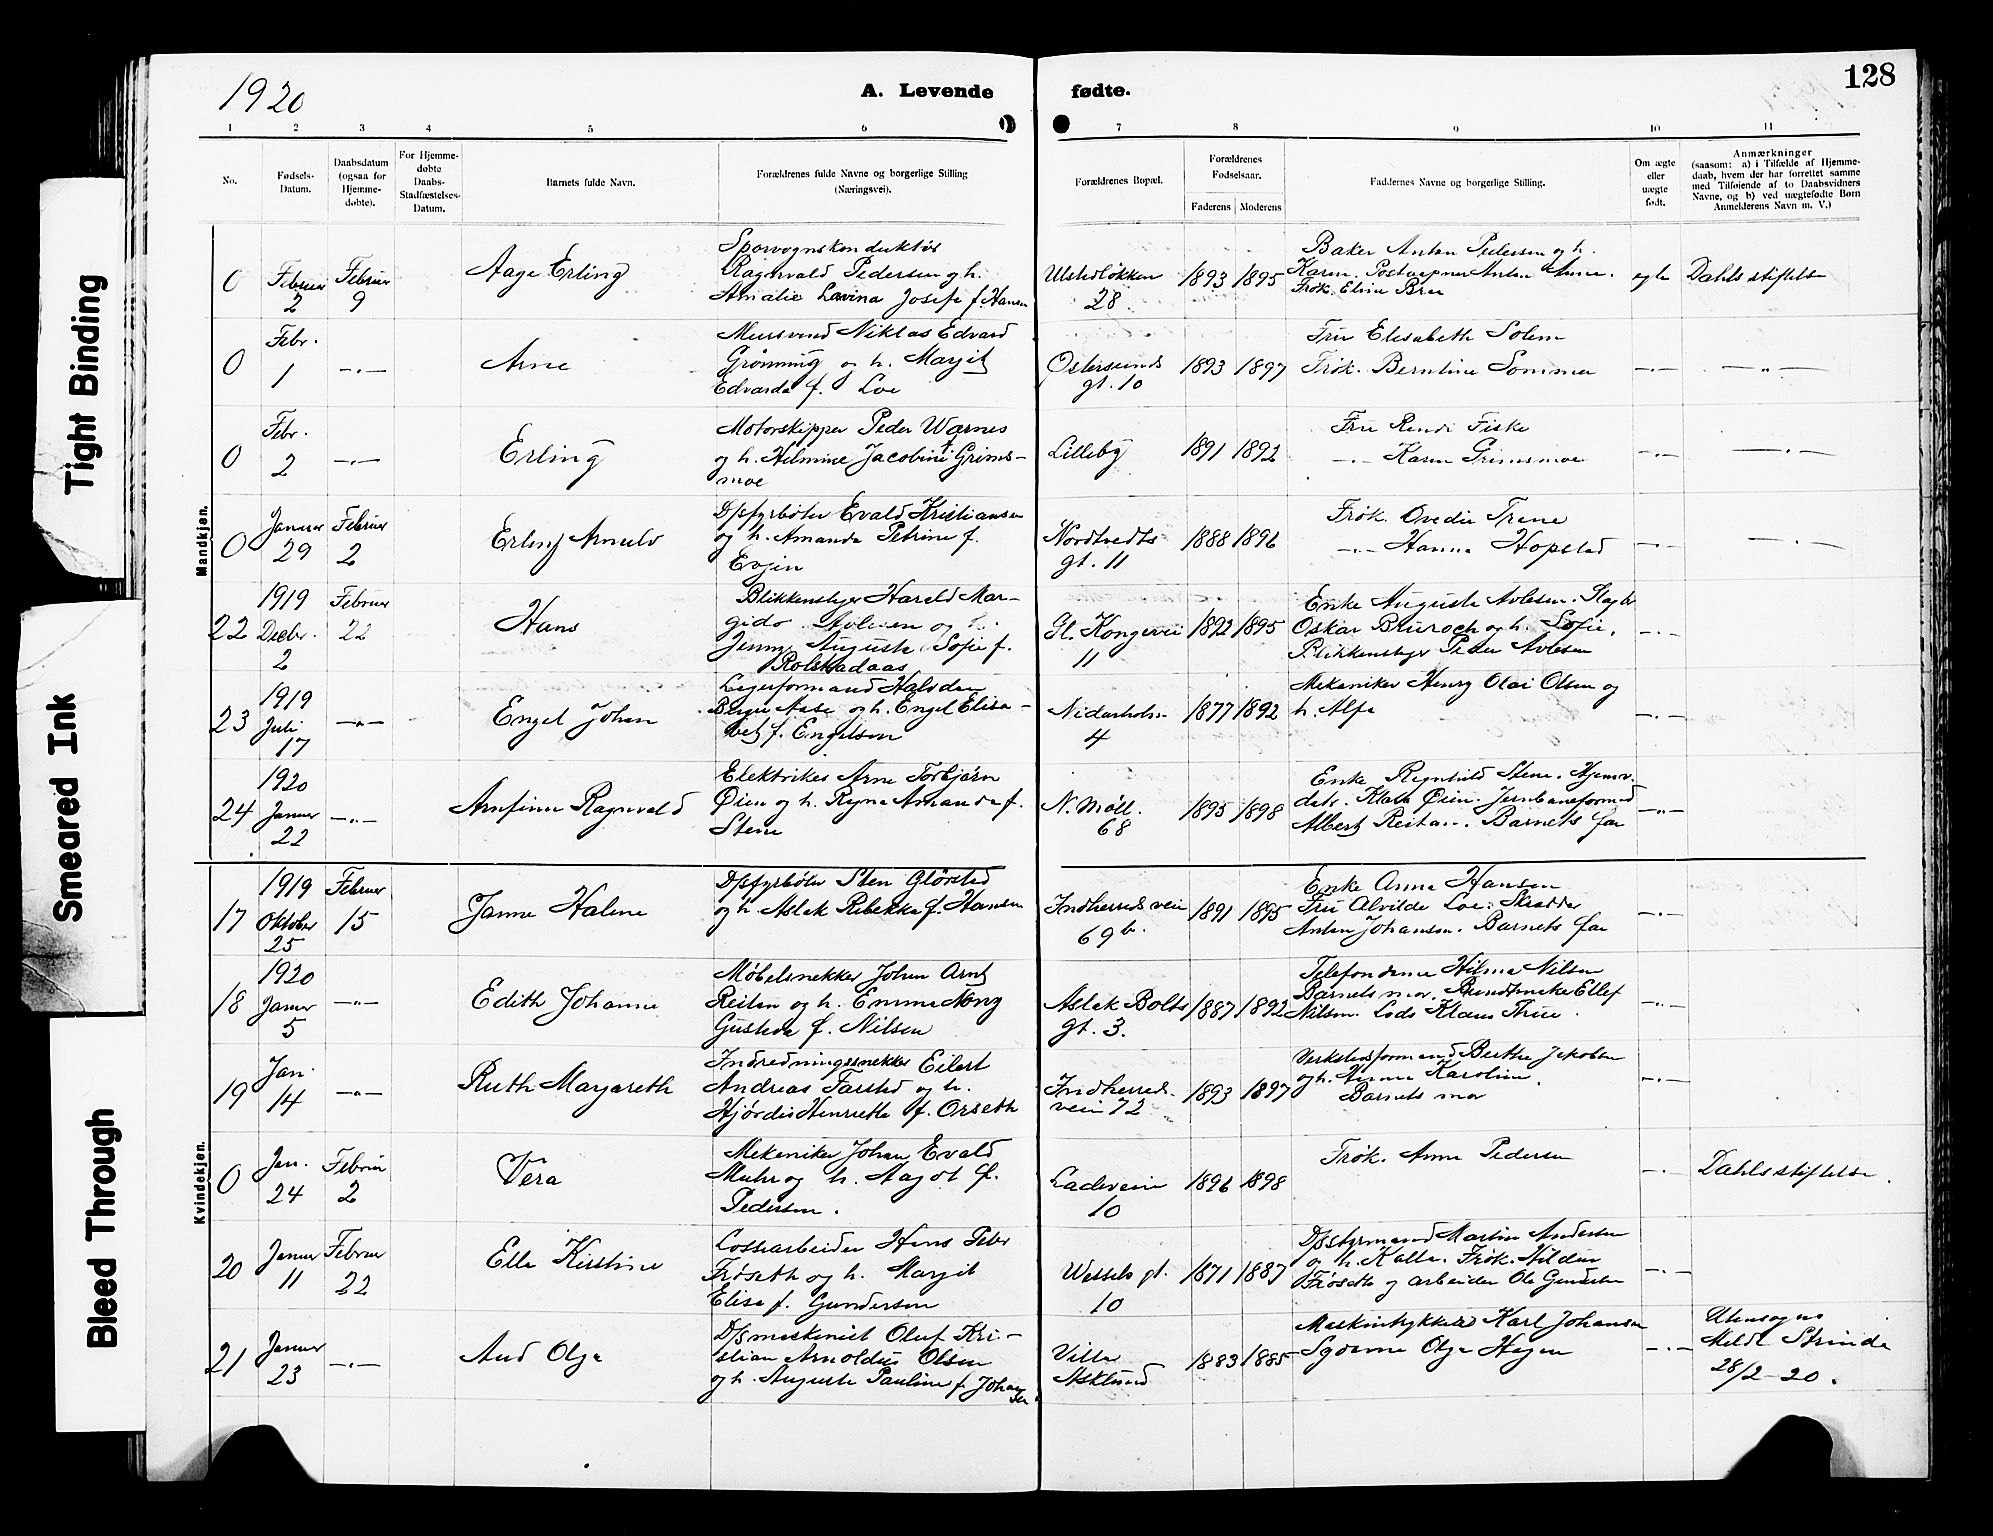 1920
A. Levende fødte.
128
Tight Binding
Smeared Ink
Bleed Through
1 2 3 4 5 6 7 8 9 10 11
No.
Fødsels-
Datum.
Daabsdatum
(ogsaa for
Hjemme-
døbte).
For Hjemme-
døbte
Daabs-
Stadfæstelses-
Datum.
Barnets fulde Navn.
Forældrenes fulde Navne og borgerlige Stilling
(Næringsvei).
Forældrenes Bopæl.
Forældrenes
Fødselsaar.
Faderens Moderens
Faddernes Navne og borgerlige Stilling.
Om ægte
eller
uægte
født.
Anmærkninger
(saasom: a) i Tilfælde af Hjemme-
daab, hvem der har forrettet samme
med Tilføiende af to Daabsvidners
Navne, og b) ved uægtefødte Børn
Anmelderens Navn m. V.)
Mandkjøn.
0
Februar
2
Februar
9
Aage Erling
Sporvognskonduktør
Ragnvald Pedersen og h.
Amalie Lovina Josefe f. Hansen
28
1893 1895
Baker Anton Pedersen og h.
Karen.
Frøk.
egte
Dahls stiftelse
0
Febr.
1
-"-
Arne
Niklas Edvard
Grønning og h. Margit
Edvarda f. Loe
Østersunds
gt. 10
1893 1897
Fru Elisabeth Solem
Frøk. Berntine Sommer
-"-
-"-
0
Febr.
2
-"-
Erling
Motorskipper Peder Warnes
og h. Hilmine Jacobine f. Grims-
moe
Lilleby
1891 1892
Fru Randi Fiske
-"- Karen Grimsmoe
-"-
-"-
0
Januar
29
Februar
2
Erling Arnulv
D/sfyrbøter Evald Kristiansen
og h. Amanda Petrine f.
Evjen
Nordtvedts
gt. 11
1888 1896
Frøk. Ovedie Trane
-"- Hanna Hopstad
-"-
-"-
22
1919
Decbr.
2
Februar
22
Hans
Blikkenslager Harald Mar-
gido Avlesen og h.
Jenny Augusta Sofie f.
Rolstadaas
Gl. Kongevei
11
1892 1895
Enke Augusta Avlesen.
Oskar og h. Sofie.
Blikkenslager Peder Avlesen
-"-
23
1919
Juli
17
-"-
Engel Johan
Lagerformand Halvdan
Birger Aase og h. Engel Elisa-
bet f. Engelsen
Nidarholm
4
1877 1892
Mekaniker Henry Olai Olsen og
h. Alfa
-"-
24
1920
Januar
22
-"-
Arnfinn Ragnvald
Elektriker Arne Torbjørn
Øien og h. Ragna Amanda f.
Stene
N. Møll.
68
1895 1898
Enke Ragnhild Stene.
Klara Øien. Jernbaneformand
Albert Reitan. Barnets far
-"-
Kvindekjøn.
17
1919
Oktober
25
Februar
15
Janne Halene
D/sfyrbøter Sten Glørstad
og h. Aslak Rebekka f. Hansen
Indherredsveien
69 b.
1891 1895
Enke Anna Hansen
Fru Alvilde Loe. Skrædder
Anton Johansen. Barnets far
-"-
18
1920
Januar
5
-"-
Edith Johanne
Møbelsnekker Johan Arnt
Reitan og h. Emma Nony
Gustava f. Nilsen
Aslak Bolts
gt. 3.
1887 1892
Telefondame Hilma Nilsen
Barnets mor. Ellef
Nilsen. Lods Klaus Thue.
-"-
19
Jan.
14
-"-
Ruth Margareth
Indredningssnekker Eilert
Andreas Farstad og h.
Hjørdis Henriette f. Orseth
Indherreds-
veien 72
1893 1897
Verkstedsformand Jakobsen
og h. Anna Karoline.
Barnets mor
-"-
0
Jan.
24
Februar
2
Vera
Mekaniker Johan Evald
Muhr og h. Aagot f.
Pedersen.
Ladeveien
10
1896 1898
Frøk. Anna Pedersen
-"-
Dahls stiftelse.
20
Januar
11
Februar
22
Ella Kirstine
Lossearbeider Hans Peter
Frøseth og h. Margit
Elise f. Gundersen
Wessels gt.
10
1871 1887
D/sstyrmand Martin Andersen
og h. Kalla. Frøk. Hildur
Frøseth og arbeider Ole Gundersen
-"-
21
Januar
23
-"-
Aud Olga
D/smaskinist Oluf Kri-
stian Arnoldus Olsen
og h. Augusta Pauline f. Johan
sen
Villa
Asklund
1883 1885
Maskintrykker Karl Johansen
Syerske Olga Hagen
-"-
Utensogns
Meldt Strinda
28/2-20.